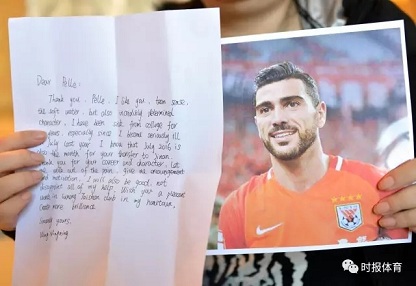 Dear Pelle:
Thank you, Pelle. I like you, from
the soft water, but also incredibly determined
character. I have been sick from college for
years, especially since I became seriously ill
July last year. I know that July 2016 is
the month for your transfer to Jinan.
Thank you for your career and character. Let
me walk out of the, give me encouragement
and motivation. I will also be good, not
disappoint all of my help. Wish you a pleasant
work in Luneng Taishan club in my hometown.
Create more brilliance.
yours,
时报体育